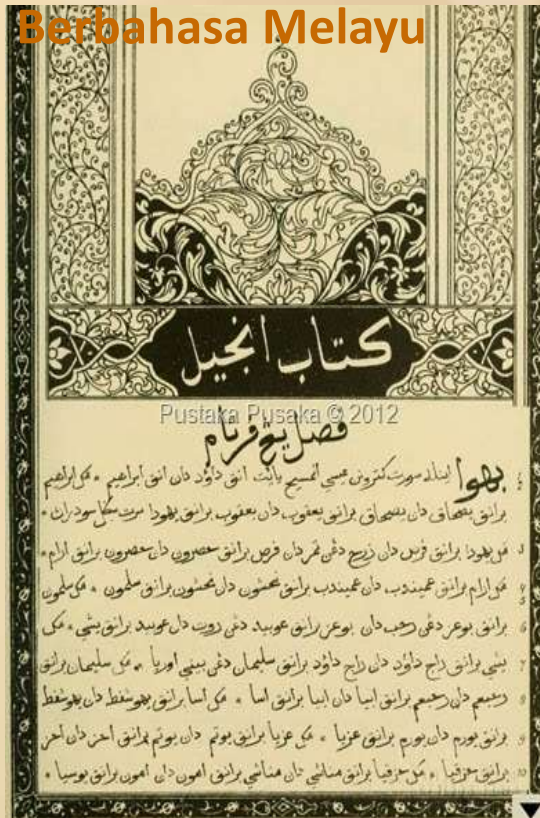 Berbahasa Melayu
كتاب انجيل
Pustaka Pusaka @ 2012
فصل يڠ فرتام
بهوا اينله سورت كتورونن عيسى المسيح يائيت انق داؤد دان انق ابراهيم * مك ابراهيم
برانق يصحاق دان يصحاق برانق يعقوب دان يعقوب برانق يهودا سرت سݢل سودران *
مك يهودا برانق فرص دان زرح دڠن تمر دان فرص برانق حصرون دان حصرون برانق ارام *
مك ارام برانق عميندب دان عميندب برانق نحشون دان نحشون برانق سلمون * مك سلمون
برانق بوعز دڠن رحب دان بوعز برانق عوبيد دڠن روت دان عوبيد برانق يشي * مك
يشي برانق راج داؤد دان راج داؤد برانق سليمان دڠن بيني اوريا * مك سليمان برانق
رحبعم دان رحبعم برانق ابيا دان ابيا برانق اسا * مك اسا برانق يهوشفط دان يهوشفط
برانق يورم دان يورم برانق عزيا * مك عزيا برانق يوتم دان يوتم برانق احز دان احز
برانق حزقيا * مك حزقيا برانق مناشي دان مناشي برانق امون دان امون برانق يوسيا *